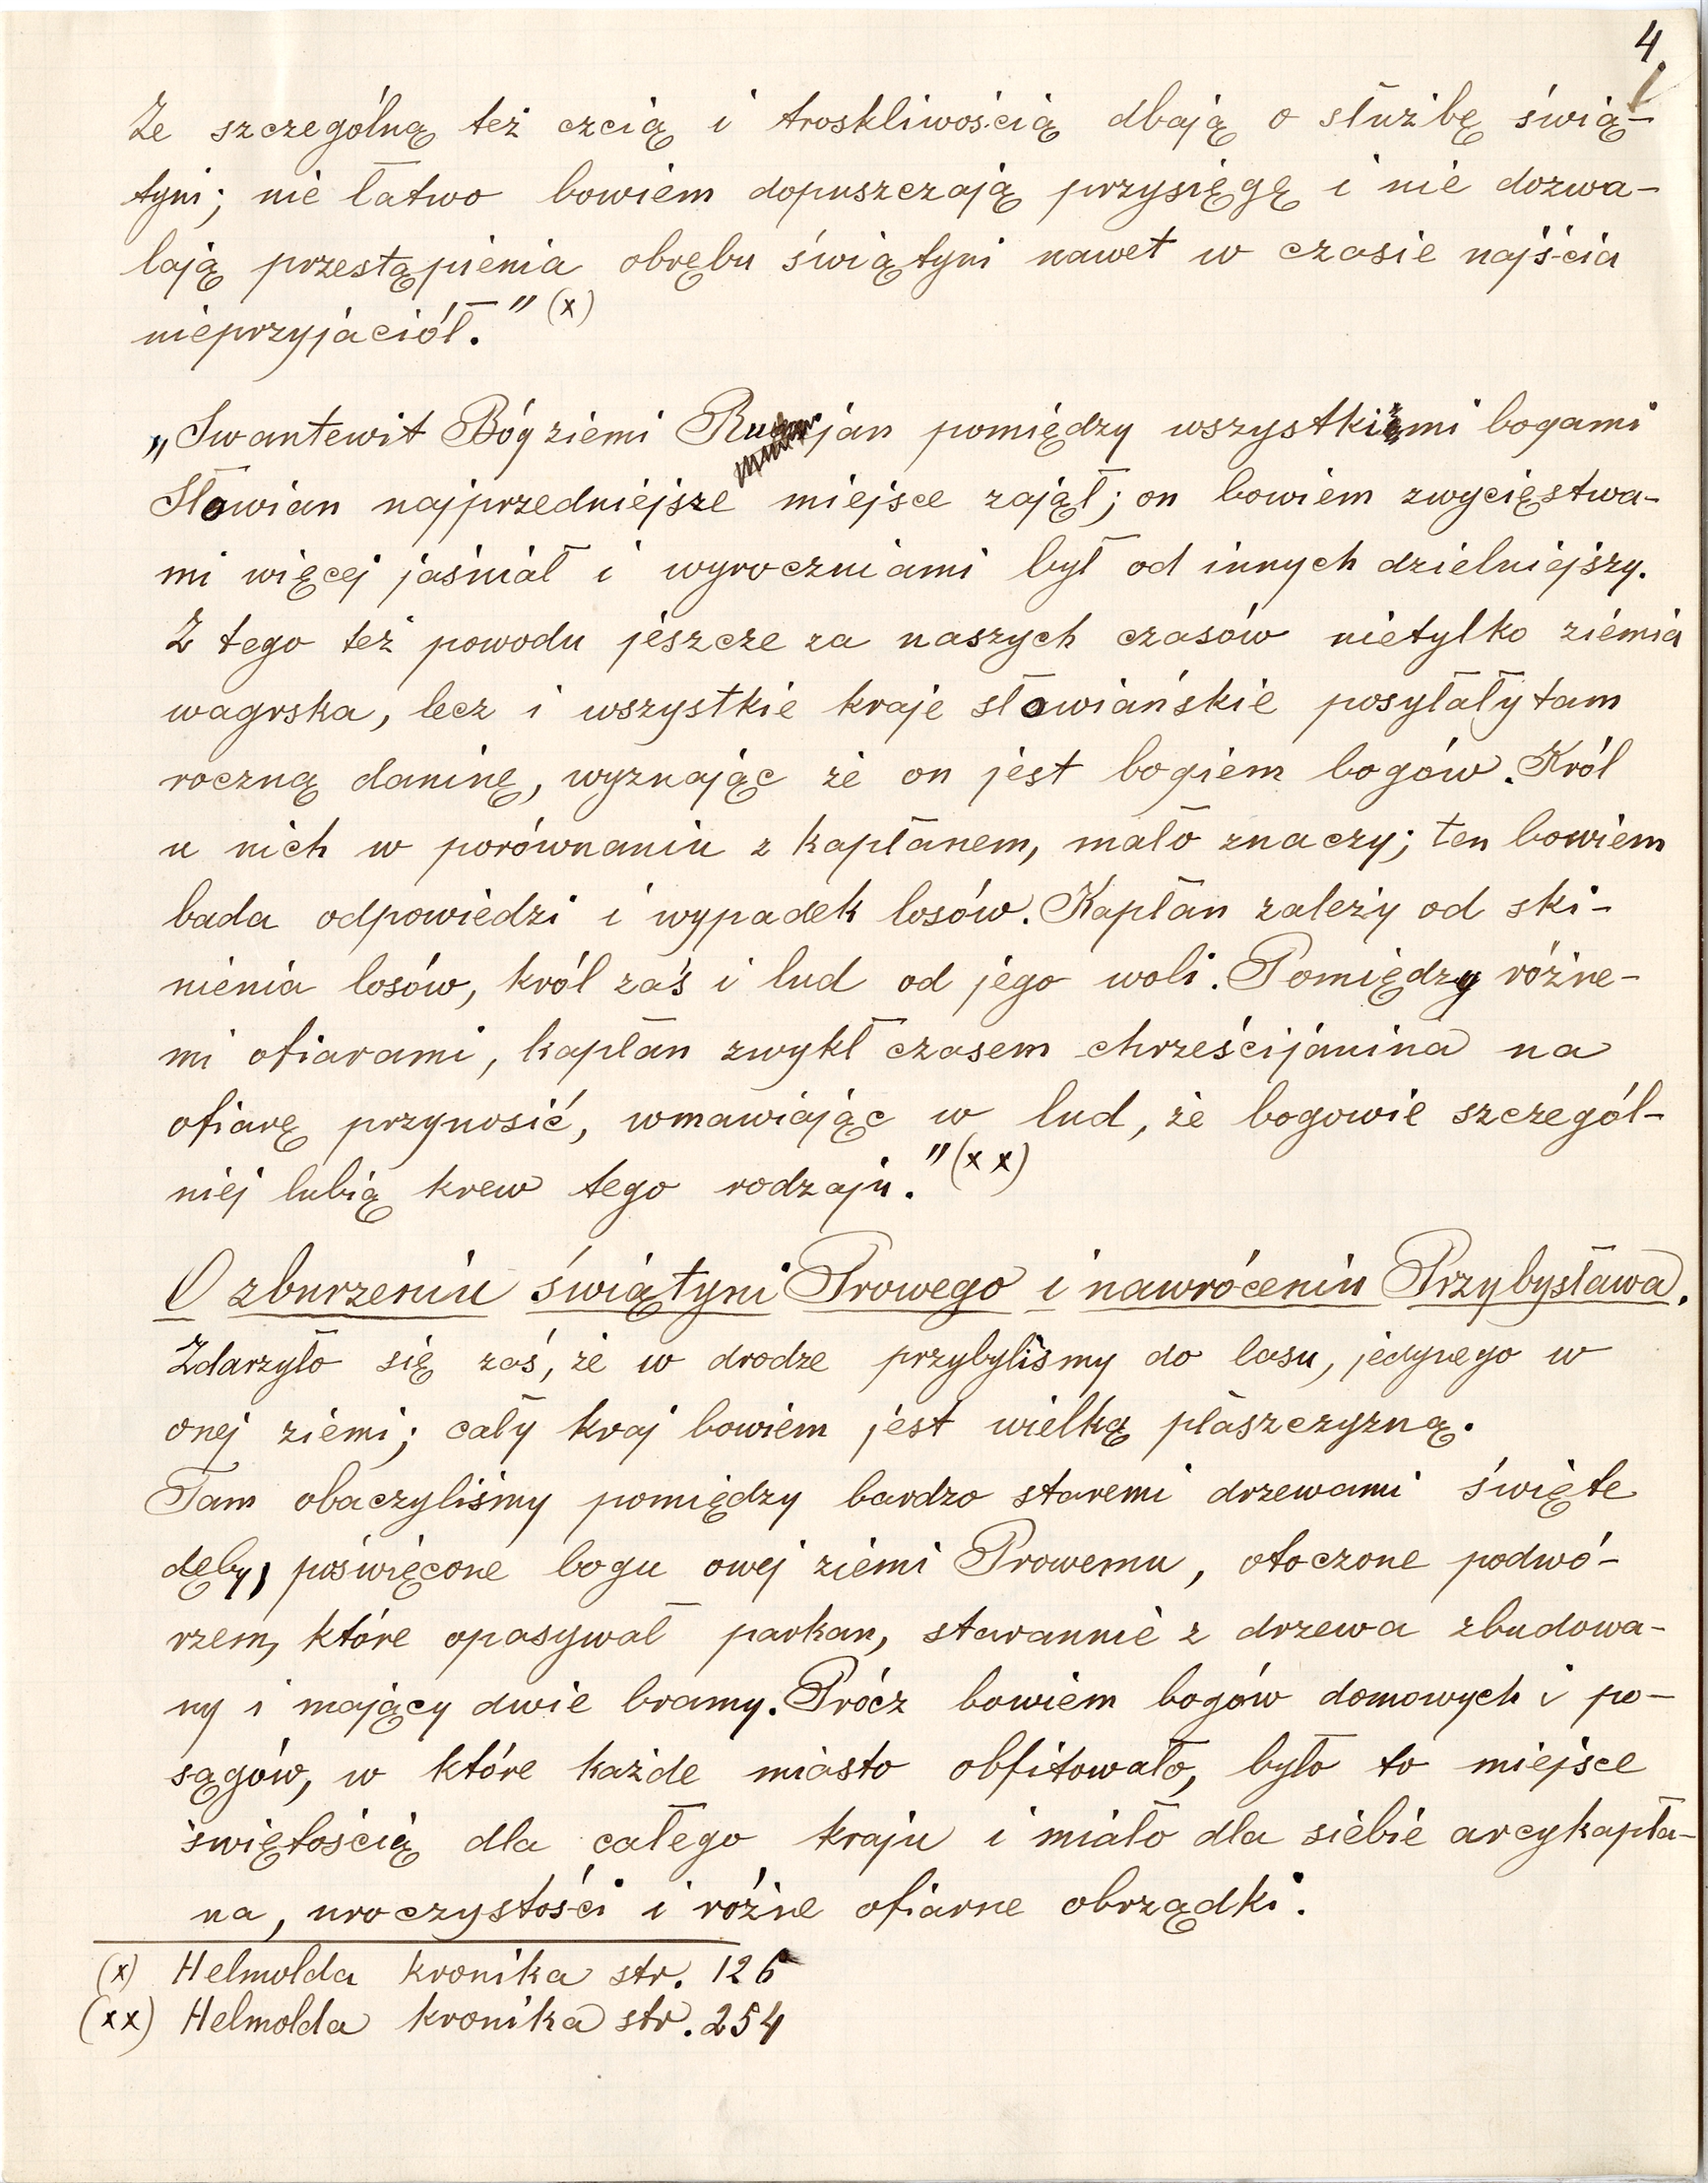 4
Ze szczególną też czcią i troskliwością dbają o służbę świą-
tyni; nie łatwo bowiem dopuszczają przysięgę i nie dozwa-
lają przestąpienia obrębu świątyni nawet w czasie najścia
nieprzyjaciół." (x)
„Swantewit Bóg ziemi Rugjan pomiędzy wszystkiemi bogami
Słowian najprzedniejsze miejsce zajął; on bowiem zwycięstwa-
mi więcej jaśniał i wyroczniami był od innych dzielniejszy.
Z tego też powodu jeszcze za naszych czasów nietylko ziemia
wagrska, lecz i wszystkie kraje słowiańskie posyłały tam
roczną daninę, wyznając że on jest bogiem bogów. Król
u nich w porównaniu z kapłanem, mało znaczy; ten bowiem
bada odpowiedzi i wypadek losów. Kapłan zależy od ski-
nienia losów, król zaś i lud od jego woli. Pomiędzy różne-
mi ofiarami, kapłan zwykł czasem chrześcijanina na
ofiarę przynosić, wmawiając w lud, że bogowie szczegól-
niej lubią krew tego rodzaju." (xx)
O zburzeniu świątyni Prowego i nawróceniu Przybysława.
Zdarzyło się zaś, że w drodze przybyliśmy do lasu, jedynego w
onej ziemi; cały kraj bowiem jest wielką płaszczyzną.
Tam obaczyliśmy pomiędzy bardzo staremi drzewami święte
dęby, poświęcone bogu owej ziemi Prowemu, otoczone podwó-
rzem, które opasywał parkan, starannie z drzewa zbudowa-
ny i mający dwie bramy. Prócz bowiem bogów domowych i po-
sągów, w które każde miasto obfitowało, było to miejsce
świętością dla całego kraju i miało dla siebie arcykapła-
na, uroczystości i różne ofiarne obrządki.
(x) Helmolda kronika str. 126
(xx) Helmolda kronika str. 254